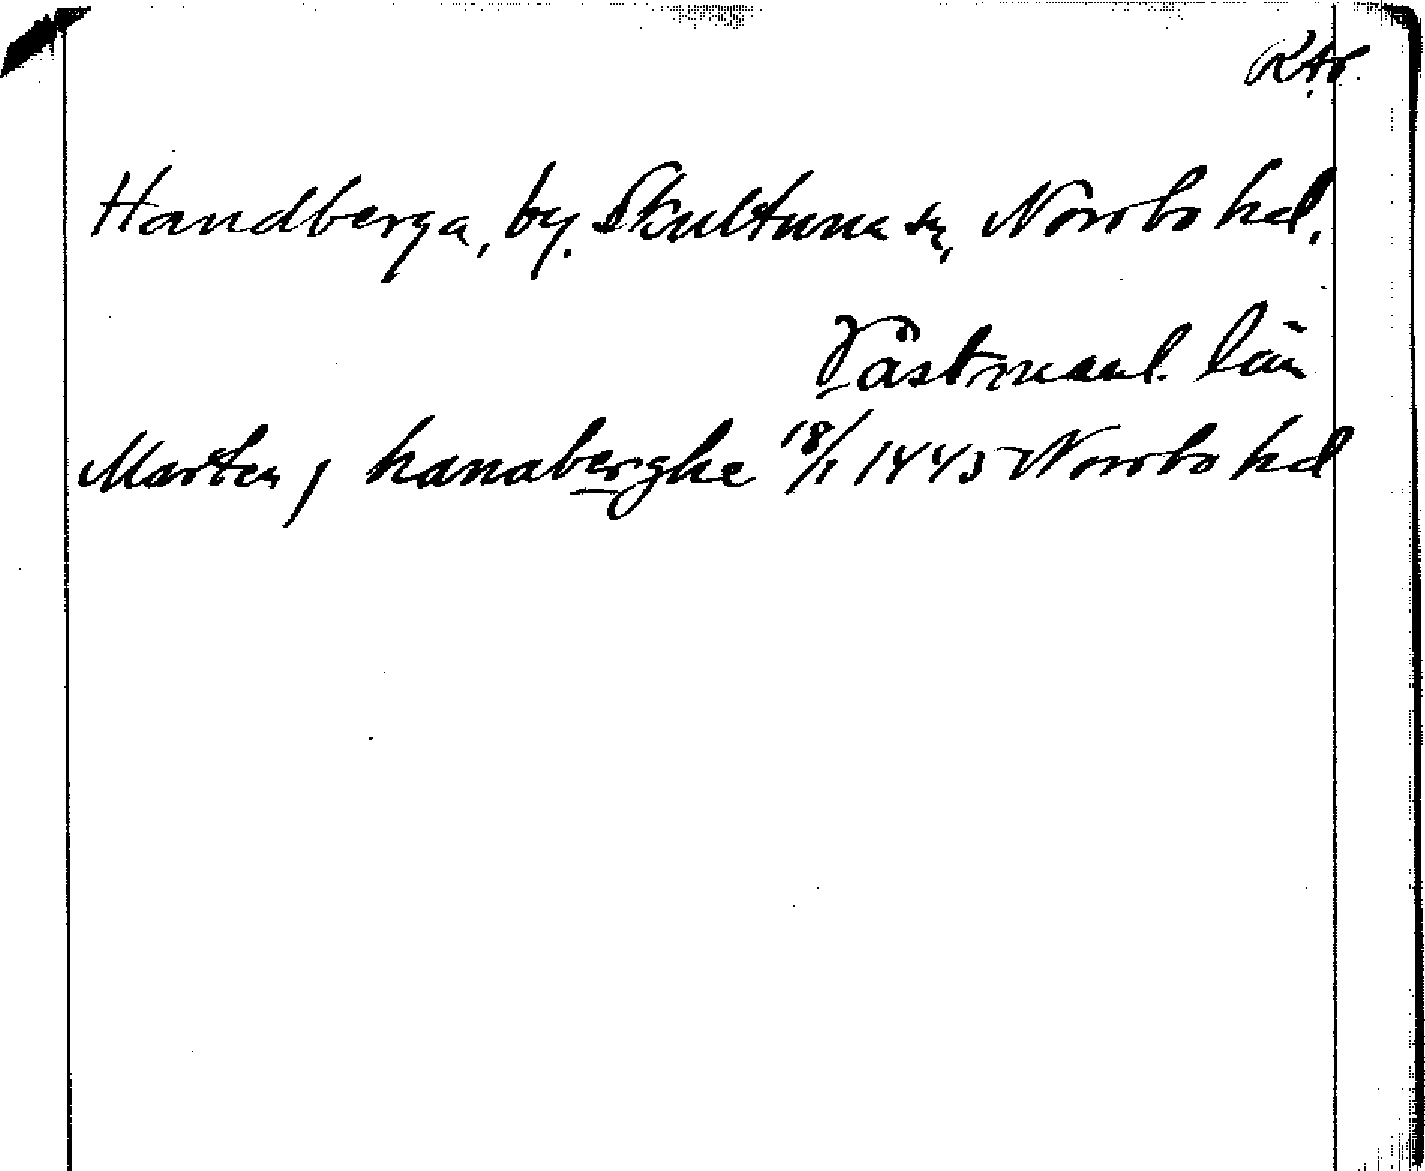 RAp.
Handberga, by. Skultuna sn, Norrbo hd.
Västmanl. län
Marten j hanaberghe 18/1 1445 Norrbo hd